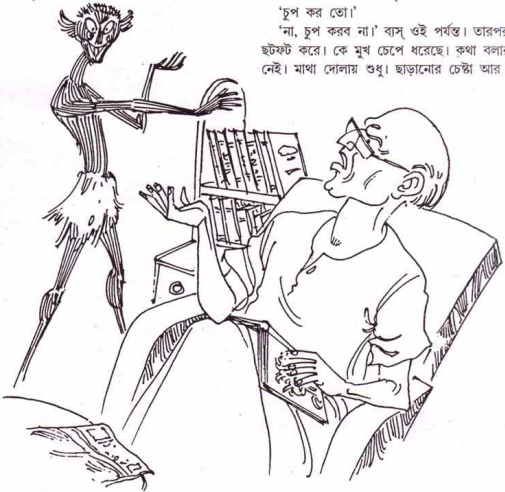 ‘চুপ কর তো।’
‘না, চুপ করব না।’ ব্যস্ ওই পর্যন্ত। তারপর
ছটফট করে। কে মুখ চেপে ধরেছে। কথা বলার
নেই। মাথা দোলায় শুধু। ছাড়ানোর চেষ্টা আর